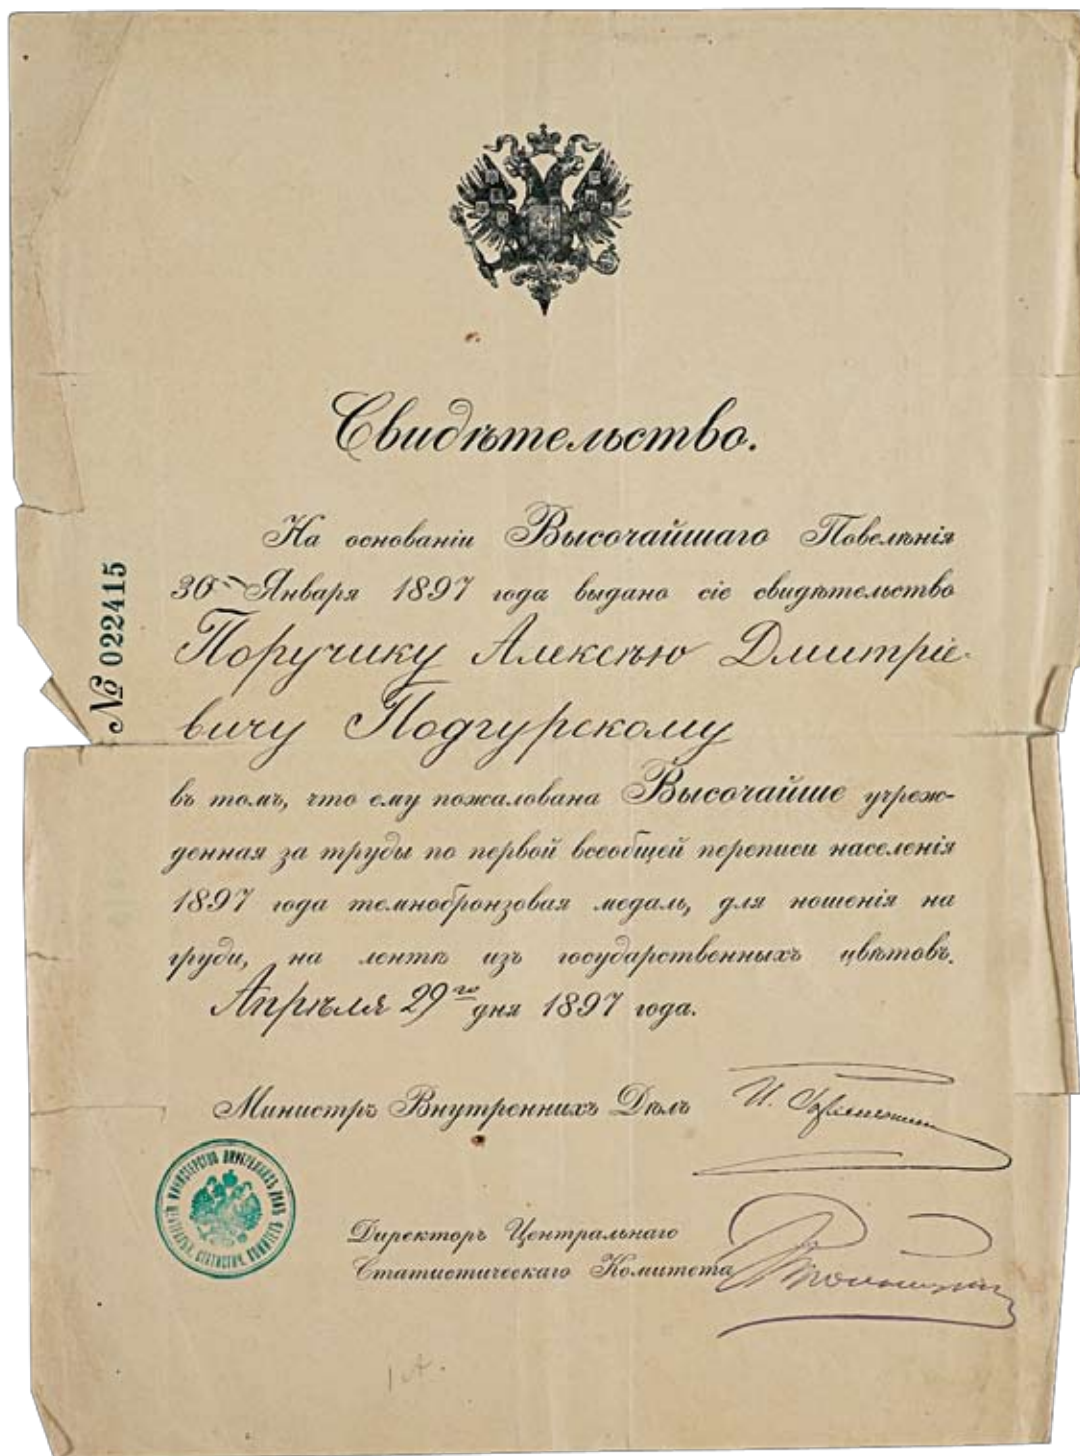 Свидѣтельство.
На основаніи Высочайшаго Повелѣнія
30 Января 1897 года выдано сіе свидѣтельство
Поручику Алексѣю Дмитріе-
вичу Подгурскому
въ томъ, что ему пожалована Высочайше учреж-
денная за труды по первой всеобщей переписи населенія
1897 года темнобронзовая медаль, для ношенія на
груди, на лентѣ изъ государственныхъ цвѣтовъ.
Апрѣля 29го дня 1897 года.
№ 022415
Министръ Внутреннихъ Дѣлъ И. Горемыкин
МИНИСТЕРСТВО ВНУТРЕННИХЪ ДѢЛЪ
СТАТИСТИЧ. КОМИТЕТЪ
Директоръ Центральнаго
Статистическаго Комитета